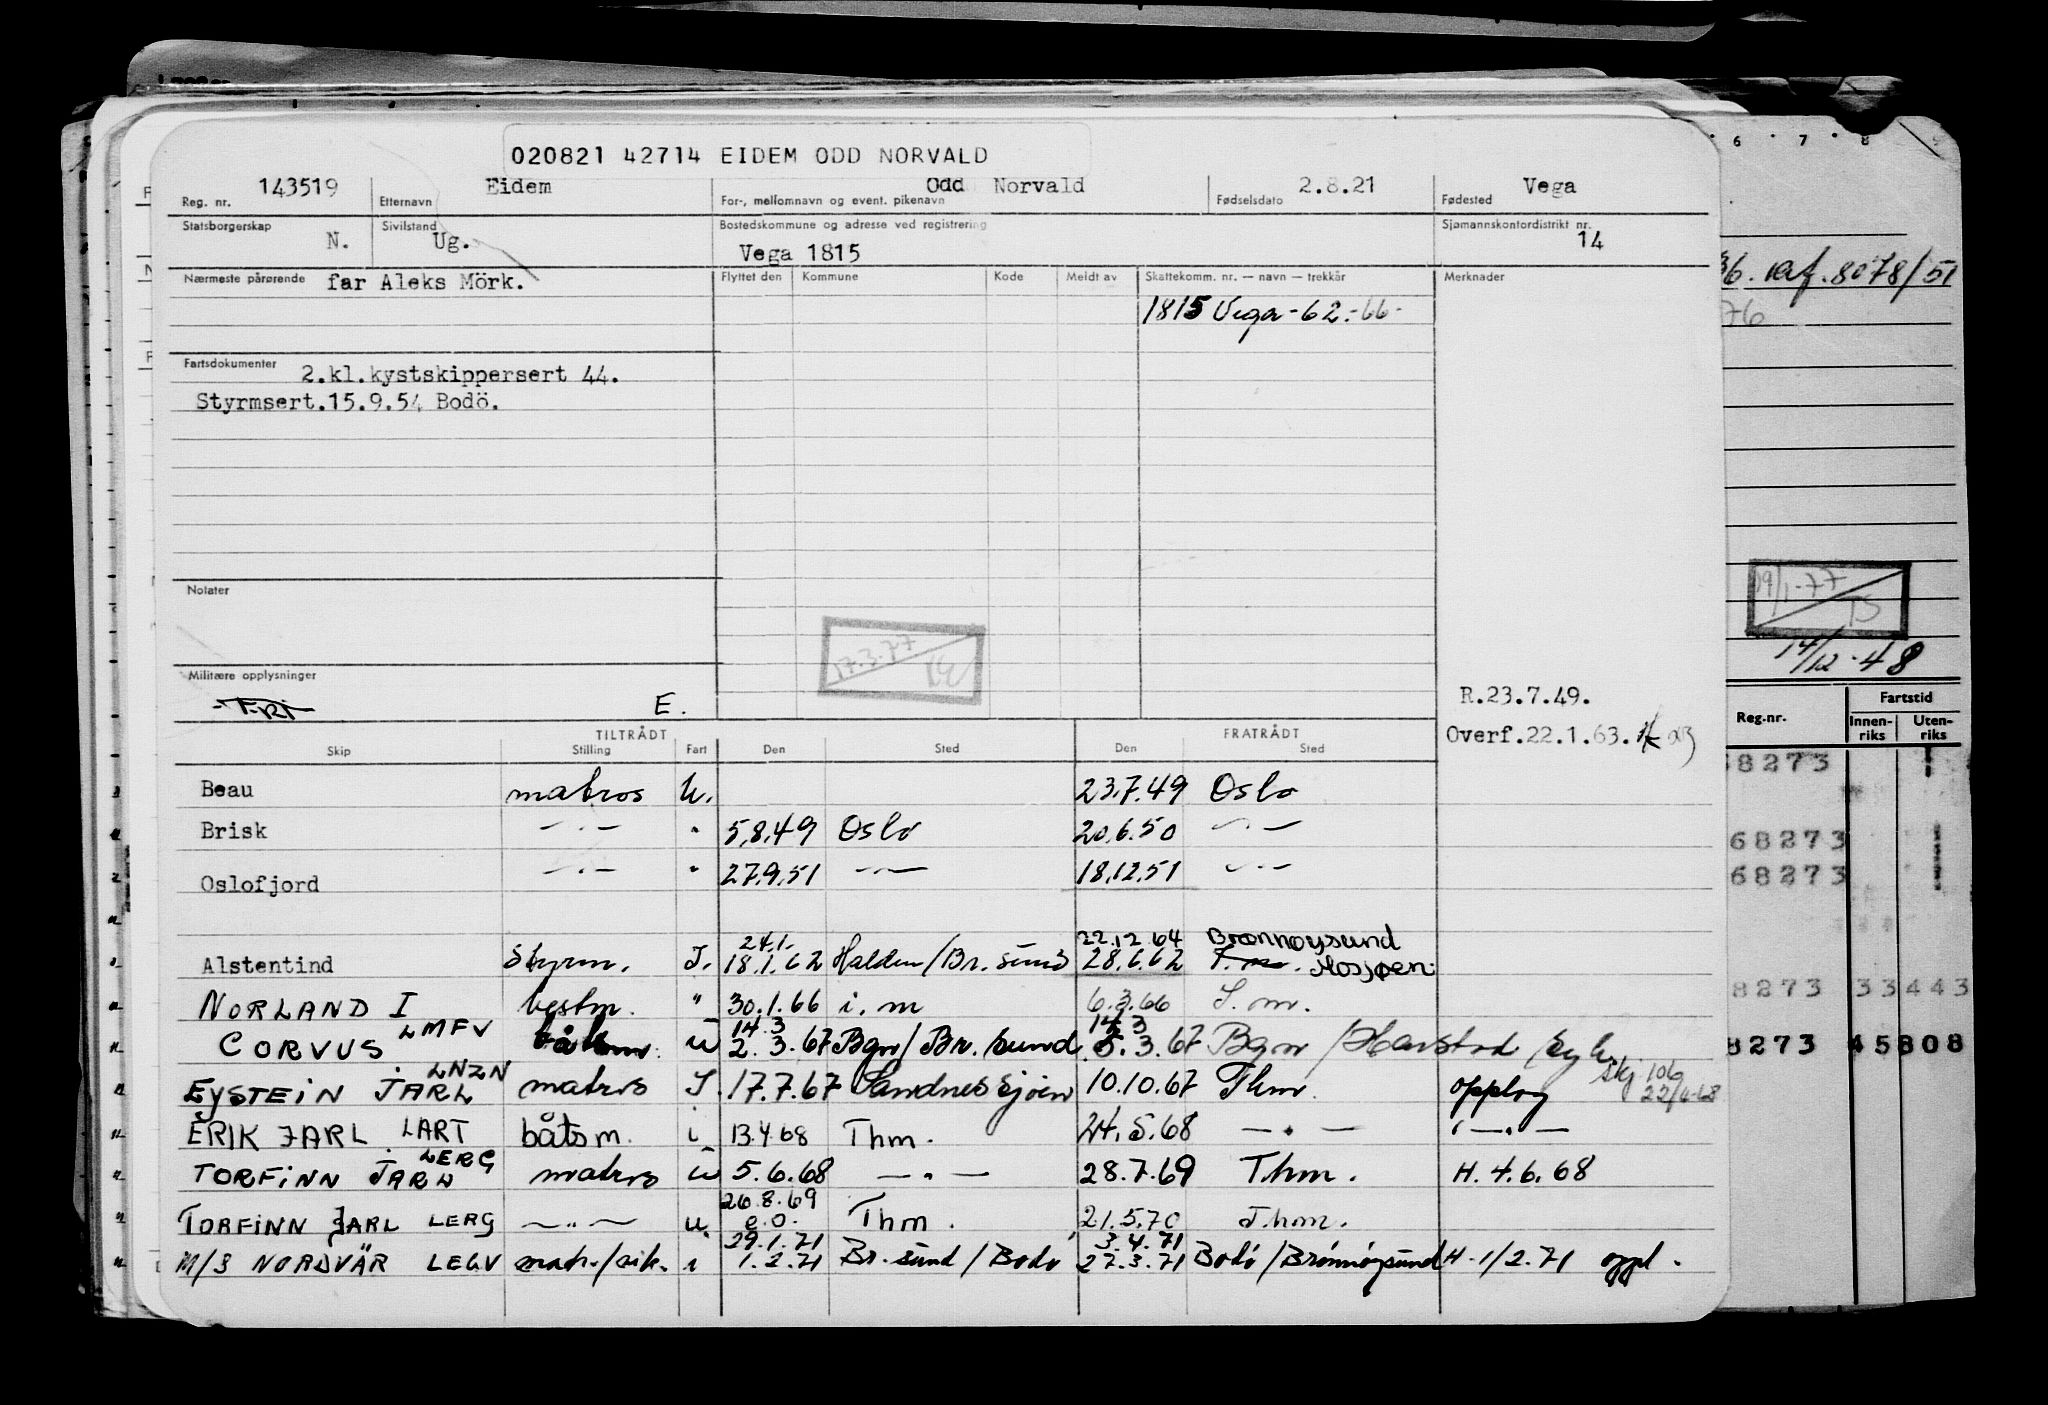 020821 42714 EIDEM ODD NORVALD
Reg. nr. 143519 Etternavn Eidem For-, mellomnavn og event. pikenavn Odd Norvald Fødselsdato 2.8.21 Fødested Vega
Statsborgerskap N. Sivilstand Ug. Bostedskommune og adresse ved registrering Vega 1815 Sjømannskontordistrikt nr. 14
Nærmeste pårørende far Aleks Mörk. Flyttet den Kommune Kode Meldt av Skattekomm. nr. — navn — trekkår Merknader
1815 Vega - 62 - 66 -
Fartsdokumenter 2.kl.kystskippersert 44.
Styrmsert.15.9.54 Bodö.
Notater
17.3.77
Militære opplysninger
Fri E.
R.23.7.49.
Overf.22.1.63.
TILTRÅDT FRATRÅDT
Skip Stilling Fart Den Sted Den Sted
Beau matros U. 23.7.49 Oslo
Brisk —·— " 5.8.49 Oslo 20.6.50 —·—
Oslofjord —·— " 27.9.51 —·— 18.12.51 —·—
24.1. 22.12.64 Brønnøysund
Alstentind Styrm. I. 18.1.62 Halden/Br. sund 28.6.62 Mosjøen
NORLAND I bestm. " 30.1.66 i. m 6.3.66 I. m.
CORVUS LMFV båtsm. u 14.3 2.3.67 Bgn/Br. sund 14.3 5.3.67 Bgn/Harstad/syk
EYSTEIN JARL LNZN matros I. 17.7.67 Sandnessjøen 10.10.67 Thm. opplag skj 106 22/4-68
ERIK JARL LART båtsm. i 13.4.68 Thm. 24.5.68 —·— —·—
TORFINN JARL LERG matros u 5.6.68 —·— 28.7.69 Thm. H. 4.6.68
TORFINN JARL LERG —"— u. 26.8.69 e.o. Thm. 21.5.70 Thm.
M/S NORDVÄR LEGV matr./vik. i 29.1.71 1.2.71 Br. sund/Bodø 3.4.71 27.3.71 Bodø/Brønnøysund H. 1/2.71 oppl.
6 7 8 9
36. ref. 8078/51
76
19/1-77
TS
14/12-48
Reg.nr. Fartstid
Innenriks Utenriks
8273
68273
68273
8273 33443
8273 45808